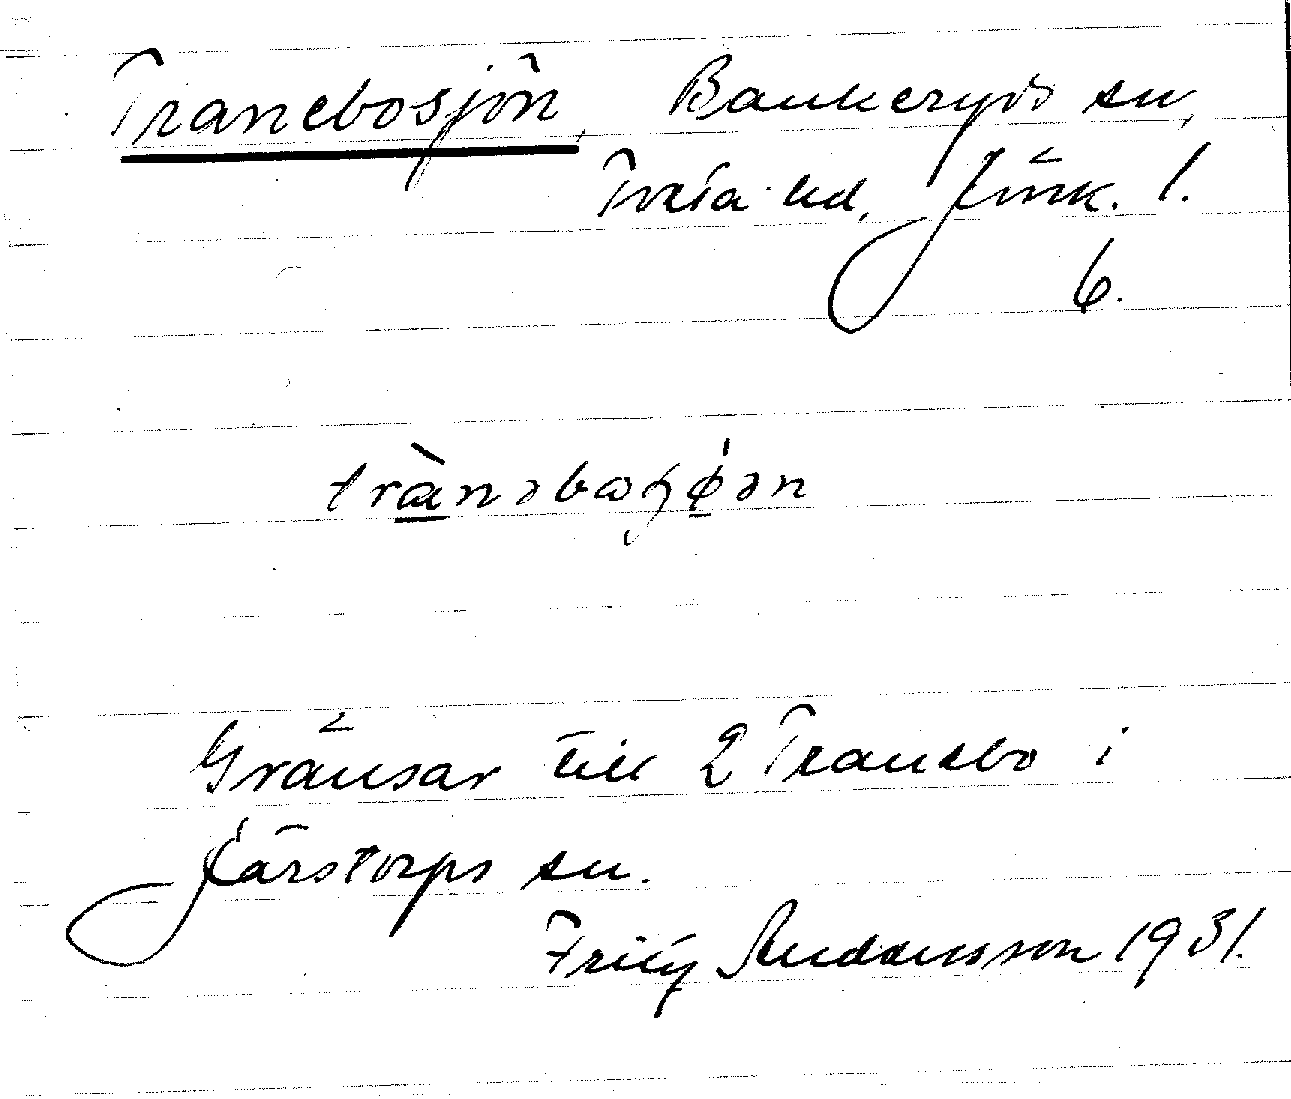 Tranebosjön, Bankeryds sn,
Tveta hd, Jönk. l.
6.
trànəbωɧø̀ən
Gränsar till 2 Tranebo i
Järstorps sn.
1931.